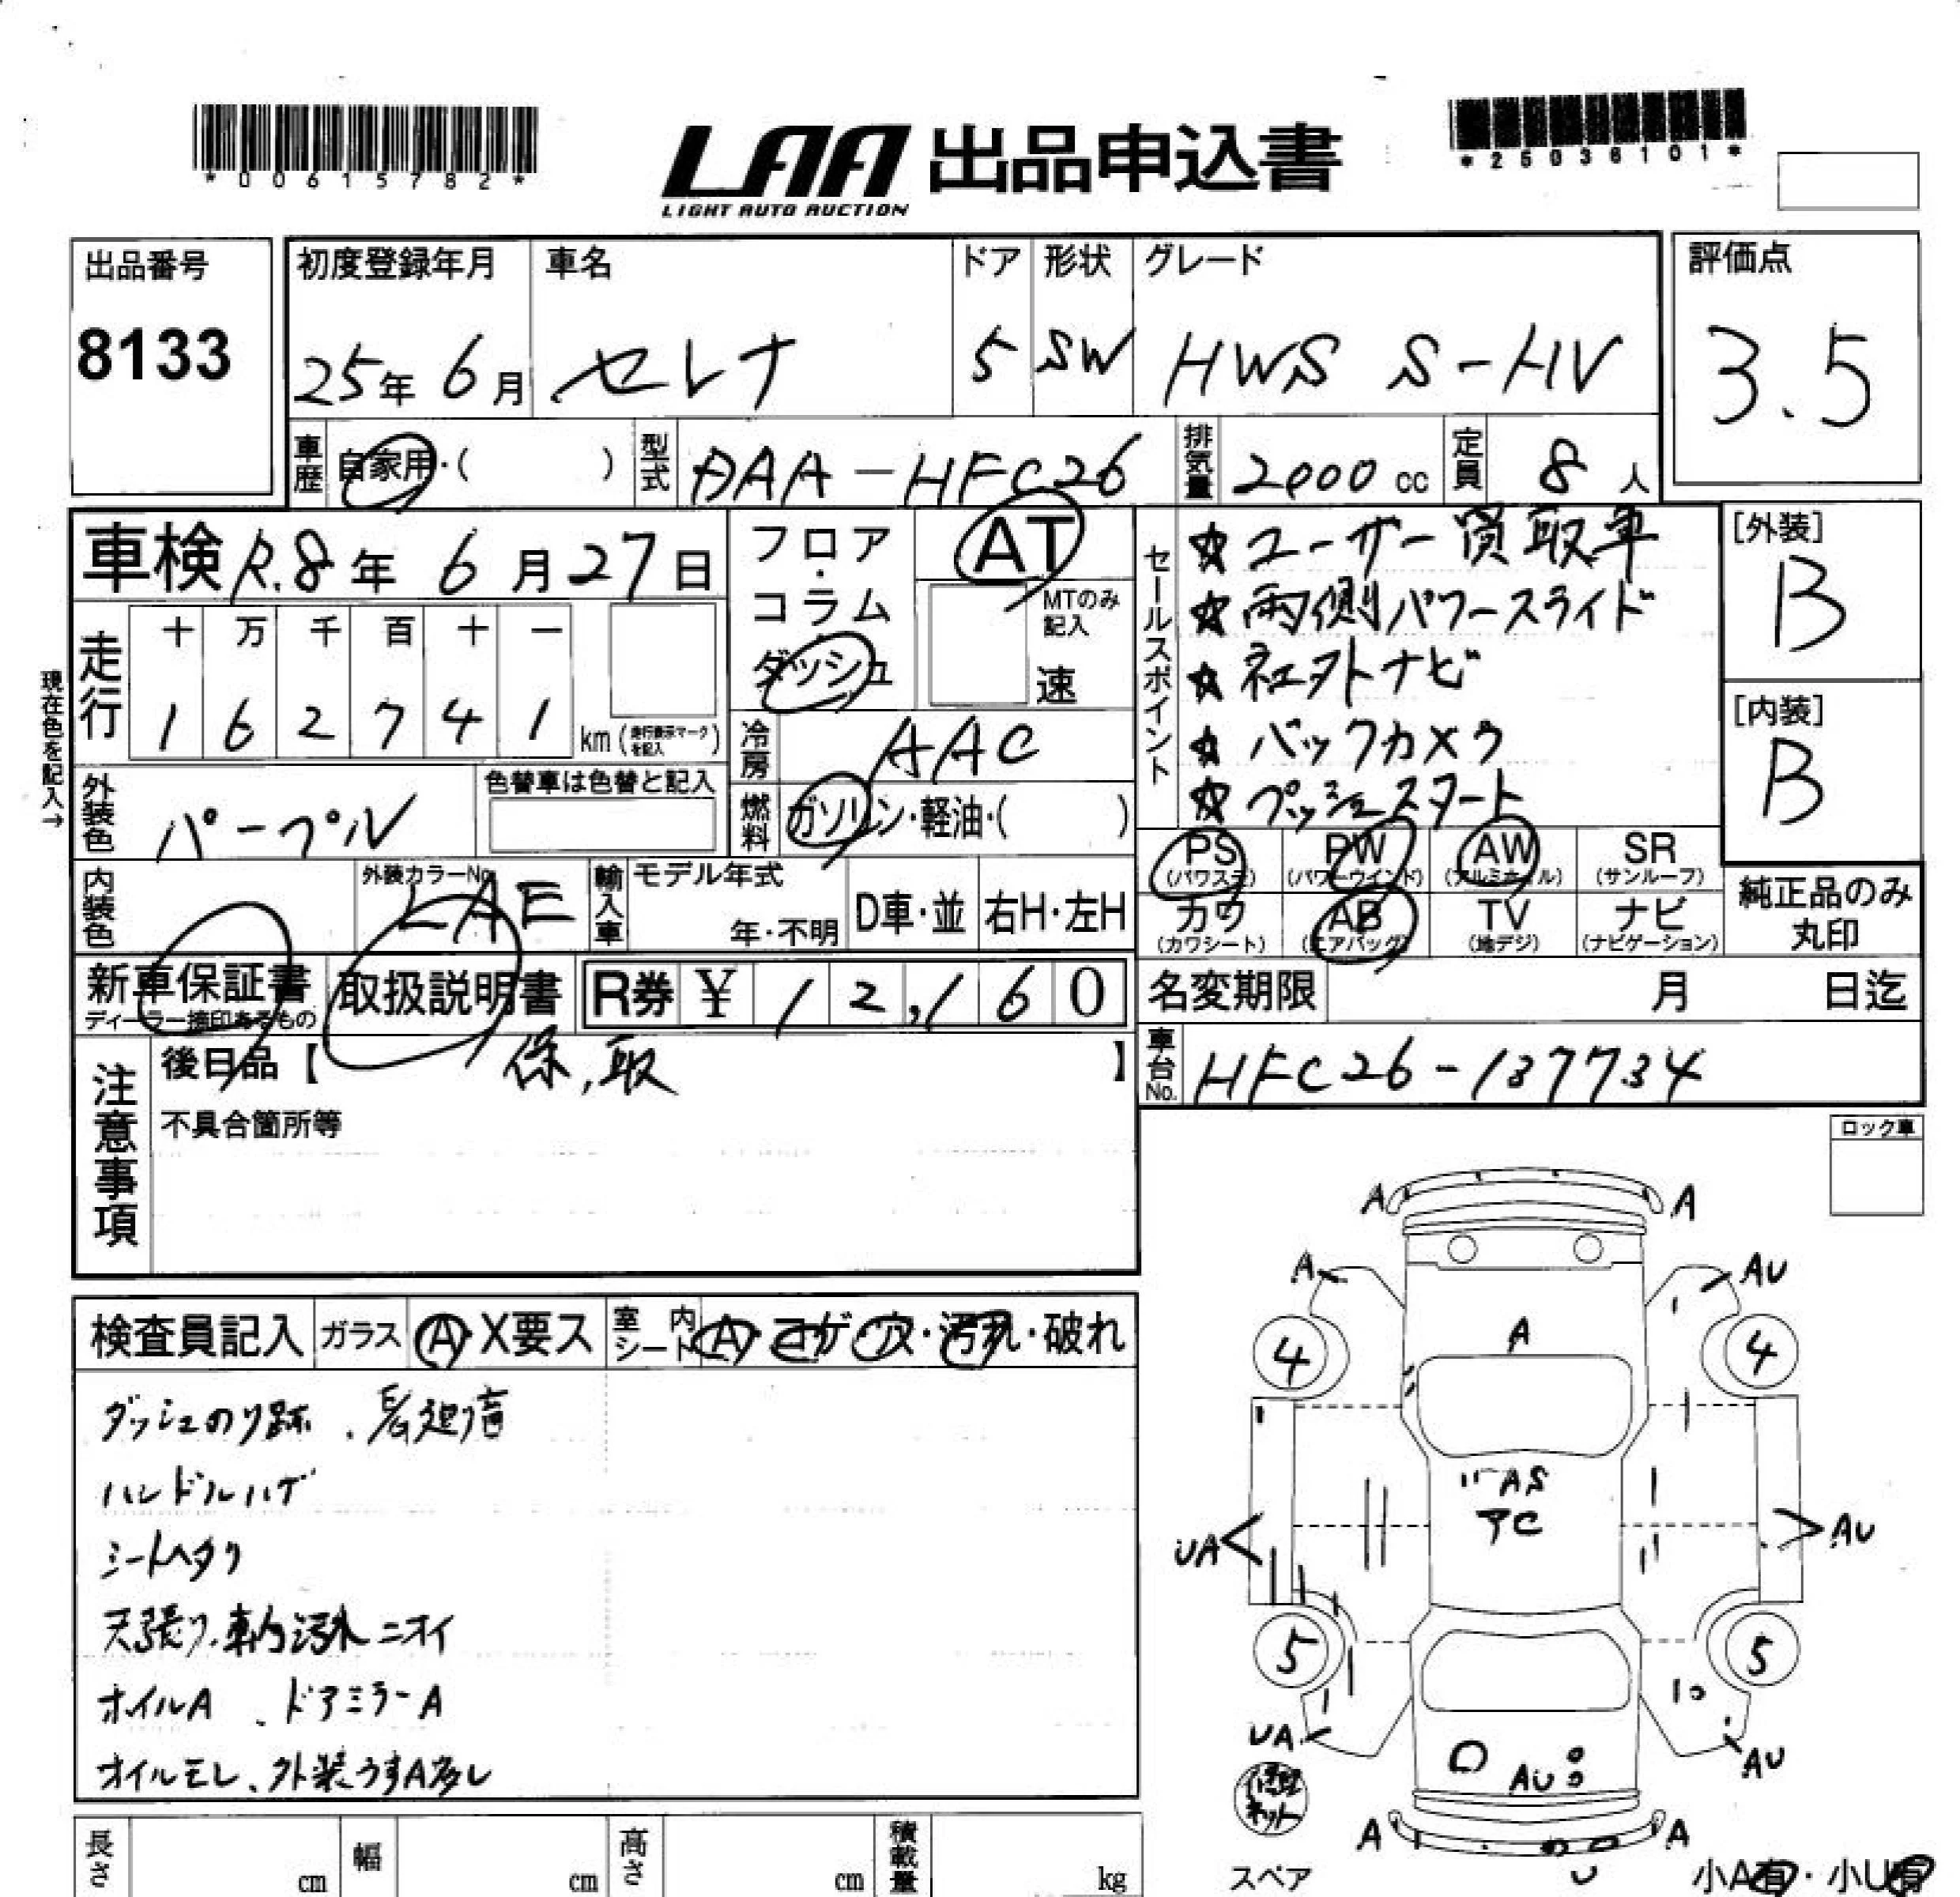 *00615782*
LAA 出品申込書
LIGHT AUTO AUCTION
*25036101*
出品番号
8133
初度登録年月
25年 6月
車名
セレナ
ドア
5
形状
SW
グレード
HWS S-HV
評価点
3.5
車歴
自家用・( )
型式
DAA-HFC26
排気量
2000 cc
定員
8 人
車検 R.8年 6月 27日
フロア・コラム・ダッシュ
AT
MTのみ記入
速
セールスポイント
☆ユーザー買取車
☆両側パワースライド
☆社外ナビ
☆バックカメラ
☆プッシュスタート
[外装]
B
[内装]
B
現在色を記入→
走行
十 万 千 百 十 一
1 6 2 7 4 1 km (走行表示マークを記入)
冷房
AAC
外装色
パープル
色替車は色替と記入
燃料
ガソリン・軽油・( )
PS (パワステ)
PW (パワーウインド)
AW (アルミホイル)
SR (サンルーフ)
カワ (カワシート)
AB (エアバッグ)
TV (地デジ)
ナビ (ナビゲーション)
純正品のみ丸印
内装色
外装カラーNo.
LAE
輸入車
モデル年式
年・不明
D車・並
右H・左H
新車保証書
ディーラー捺印あるもの
取扱説明書
R券 ¥ 12,160
名変期限 月 日迄
車台No.
HFC26-137734
注意事項
後日品【 保、取 】
不具合箇所等
ロック車
検査員記入
ガラス A・X要ス
室内シート A・コゲ・穴・汚れ・破れ
ダッシュのり跡、
ハンドルハゲ
シートヘタリ
天張り、車内汚れ ニオイ
オイルA、ドアミラーA
オイルモレ、外装うすA多し
A A
A AU
4 4
A
AS
アC
UA AU
5 5
UA AU
AU
A A
U
スペア
小A有・小U有
長さ cm
幅 cm
高さ cm
積載量 kg